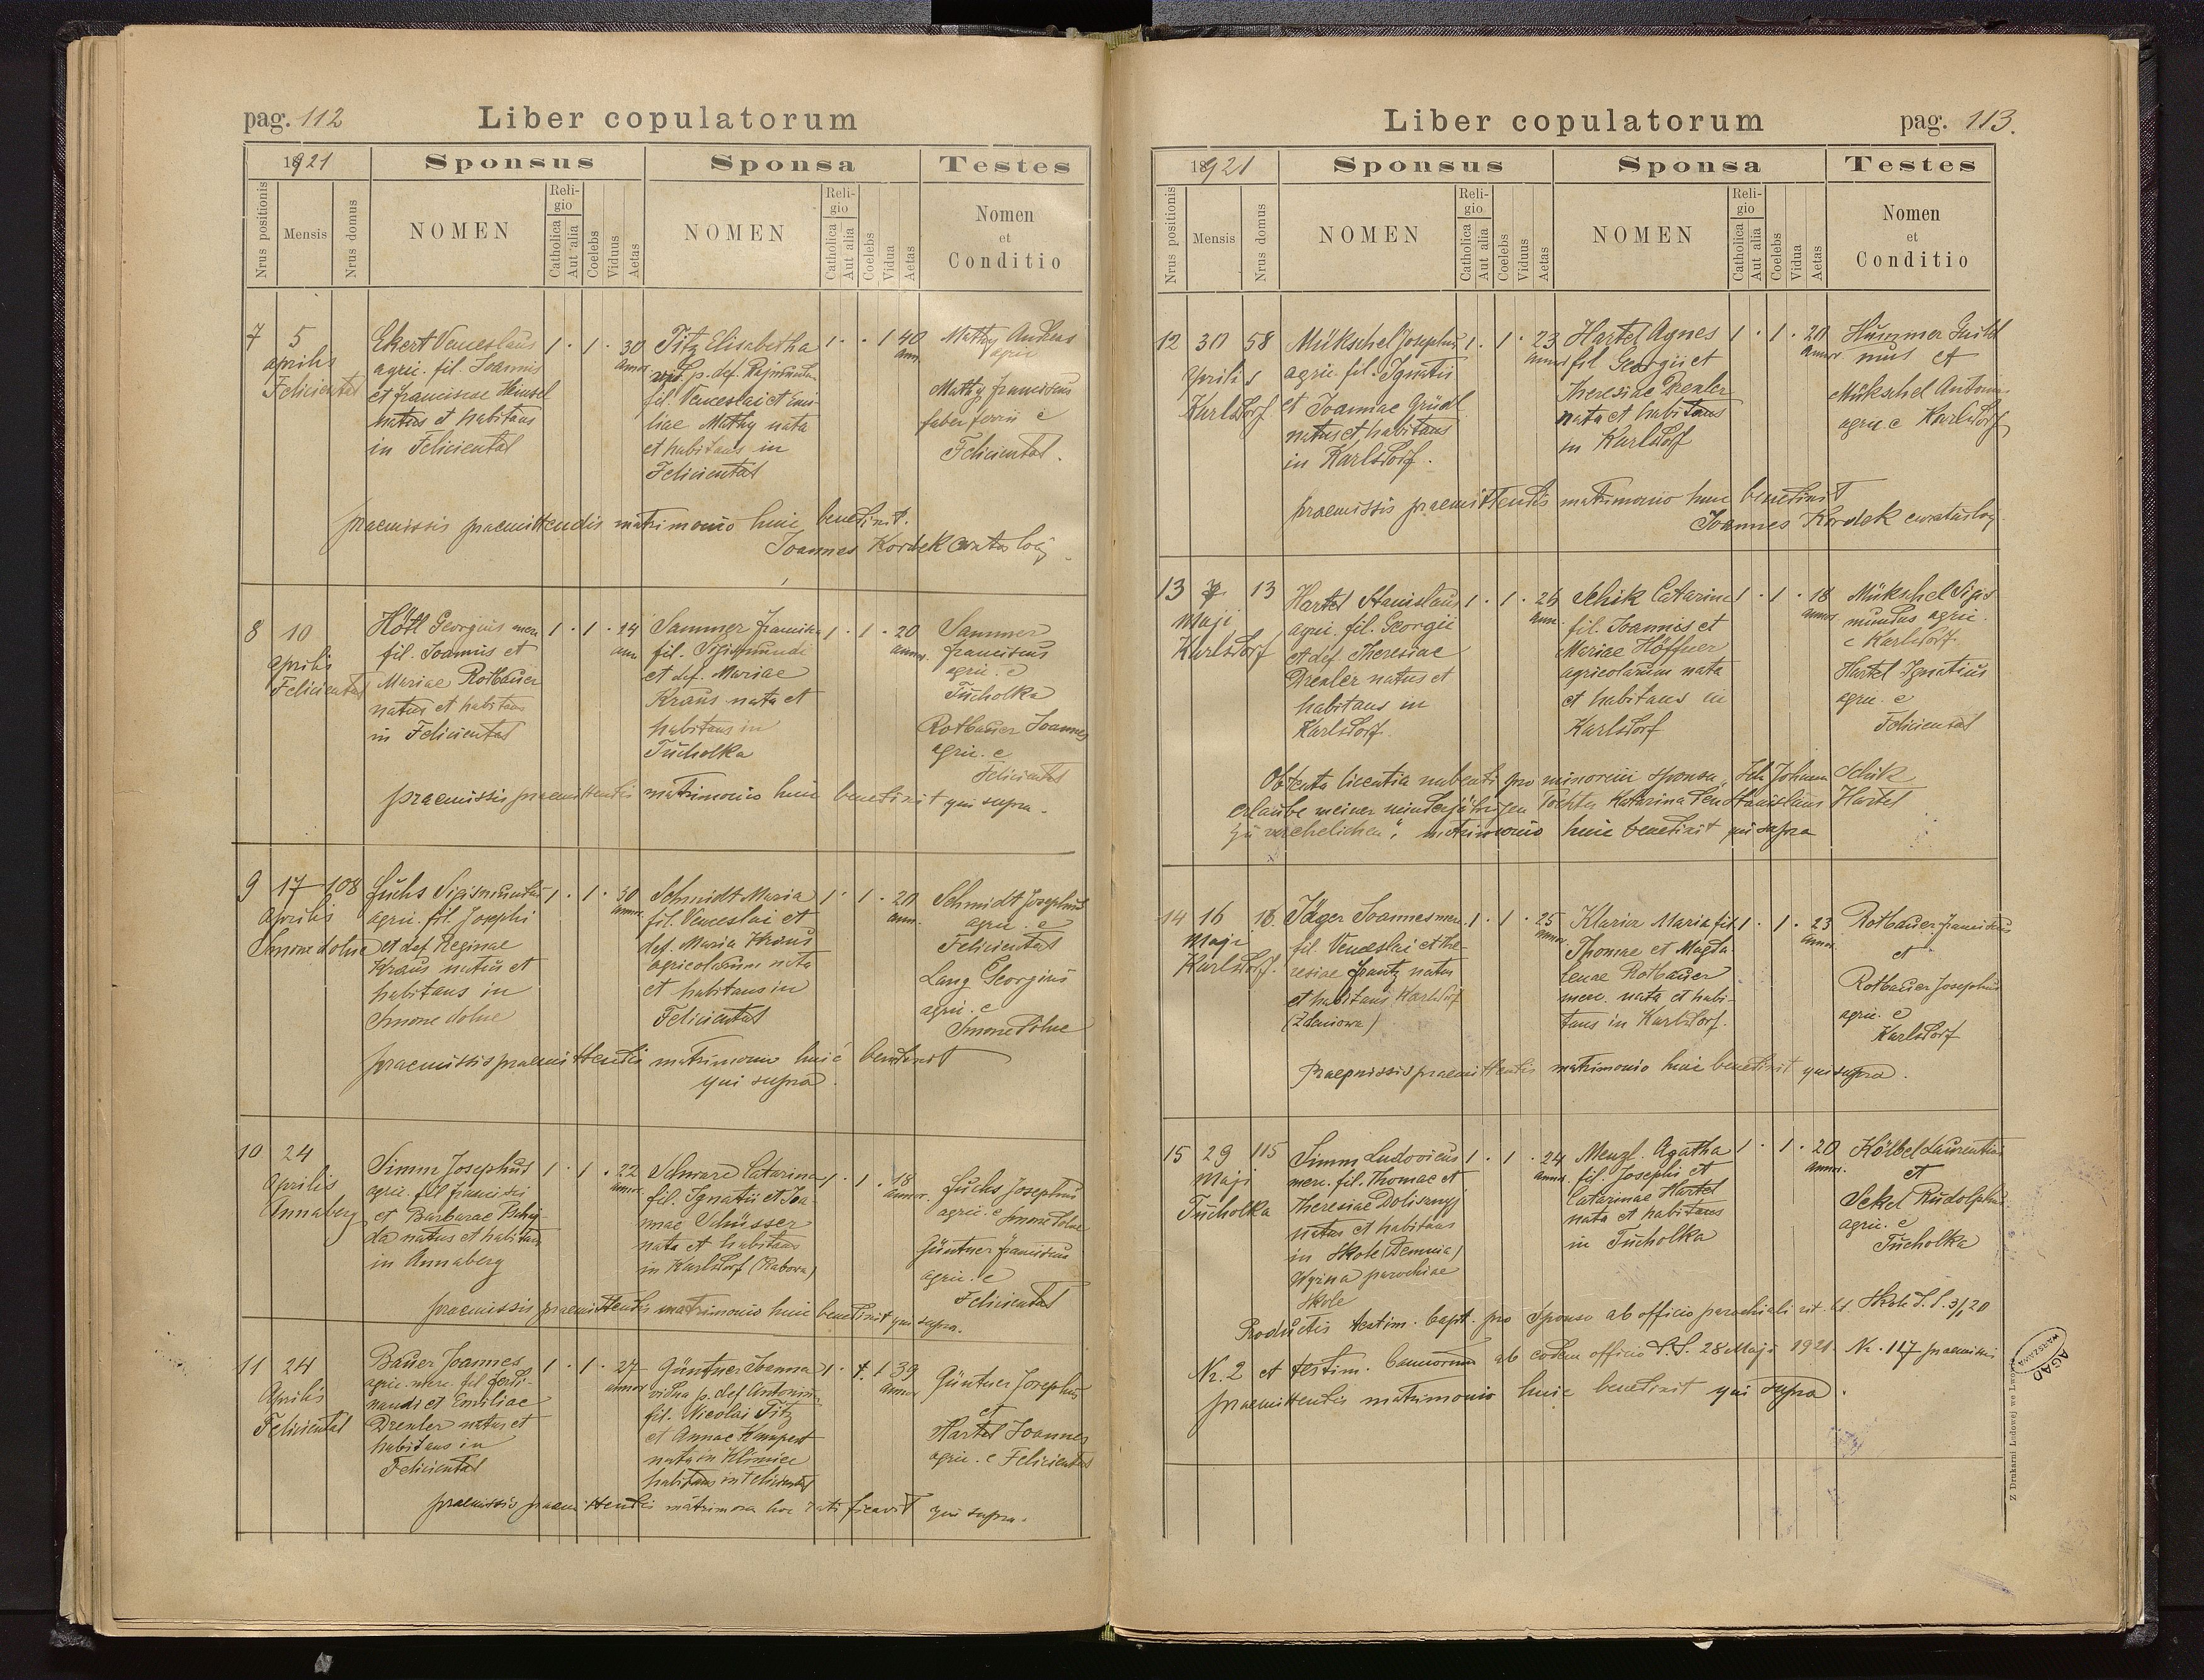 pag. 112
Liber copulatorum
1921
Sponsus
Sponsa
Testes
Nrus positionis
Mensis
Nrus domus
NOMEN
Religio
Catholica
Aut alia
Coelebs
Viduus
Aetas
NOMEN
Religio
Catholica
Aut alia
Coelebs
Vidua
Aetas
Nomen
et
Conditio
7 5
aprilis
Felicienthal
Ekert Venceslaus
agric. fil. Joannis
et Franciscae Hinsel
natus et habitans
in Feliciental
1 · 1 · 30
annor
Titz Elisabetha
vid. p. def.
fil. Venceslai et Emi-
liae Mathy nata
et habitans in
Feliciental
1 · · 1 40
ann.
Mathy Andreas
agric
Mathy Franciscus
faber ferrii e
Feliciental.
praemissis praemittendis matrimonio huic benedixit.
Joannes Kordek curatus loci
8 10
aprilis
Feliciental
Hötl Georgius merc
fil. Joannis et
Mariae Rotbauer
natus et habitans
in Feliciental
1 · 1 · 24
ann
Sammer Francisca
fil. Sigismundi
et def. Mariae
Kraus nata et
habitans in
Tucholka
1 · 1 · 20
annor.
Sammer
Franciscus
agric. e
Tucholka
Rotbauer Joannes
agric. e
Feliciental
praemissis praemittendis matrimonio huic benedixit qui supra.
9 17 108
Aprilis
Smorze dolne
Fuchs Sigismundus
agric. fil. Josephi
et def. Reginae
Kraus natus et
habitans in
Smorze dolne
1 · 1 · 30
annor.
Schmidt Maria
fil. Venceslai et
def. Maria Kraus
agricolarum nata
et habitans in
Feliciental
1 · 1 · 20
ann.
Schmidt Josephus
agric. e
Feliciental
Lang Georgius
agric. e
Smorze dolne
praemissis praemittendis matrimonio huic benedixit
qui supra.
10 24
Aprilis
Annaberg
Simm Josephus
agric. fil Francisci
et Barbarae
da natus et habitans
in Annaberg
1 · 1 · 22
annor.
Schwarz Catarina
fil. Ignatii et Joa-
nnae Schüsser
nata et habitans
in Karlsdorf
1 · 1 · 18
annor.
Fuchs Josephus
agric. e Smorze dolne
Güntner Franciscus
agric. e
Feliciental
praemissis praemittendis matrimonio huic benedixit qui supra.
11 24
Aprilis
Feliciental
Bauer Joannes
agric. merc. fil. Ferdi-
nandi et Emiliae
Drexler natus et
habitans in
Feliciental
1 · 1 · 27
annor
Güntner Joanna
vidua p. def Antonium
fil. Nicolai Titz
et Annae
nata in Klimiec
habitans in Feliciental
1 · 1 39
annor
Güntner Josephus
et
Hartel Joannes
agric. e Feliciental
praemissis praemittendis matrimonia hoc ratificavit qui supra.
Liber copulatorum
pag. 113.
1921
Sponsus
Sponsa
Testes
Nrus positionis
Mensis
Nrus domus
NOMEN
Religio
Catholica
Aut alia
Coelebs
Viduus
Aetas
NOMEN
Religio
Catholica
Aut alia
Coelebs
Vidua
Aetas
Nomen
et
Conditio
12 30 58
Aprilis
Karlsdorf
Mükschel Josephus
agric. fil. Ignatii
et Joannae Grüdl
natus et habitans
in Karlsdorf.
1 · 1 · 23
annor
Hartel Agnes
fil Georgii et
Theresiae Drexler
nata et habitans
in Karlsdorf
1 · 1 · 20
annor
Hummer Guilel
mus et
Mükschel Antonius
agric. e Karlsdorf
praemissis praemittendis matrimonio huic benedixit
Joannes Kordek curatus loci.
13 7 13
Maji
Karlsdorf
Hartel Stanislaus
agric. fil. Georgii
et def. Theresiae
Drexler natus et
habitans in
Karlsdorf.
1 · 1 · 26
ann.
Schik Catarina
fil. Joannis et
Mariae Höffner
agricolarum nata
et habitans in
Karlsdorf
1 · 1 · 18
annor
Mükschel Sigis
mundus agric.
e Karlsdorf.
Hartel Ignatius
agric. e
Feliciental
Obtenta licentia nubendi pro minoreni sponsa „Ich Johann Schik
erlaube meiner minderjährigen Tochter Katarina den Stanislaus Hartel
zu verehelichen“; matrimonio huic benedixit qui supra
14 16 16
Maji
Karlsdorf.
Jäger Joannes merc.
fil. Venceslai et The-
resiae Frantz natus
et habitans Karlsdorf
(Zdeniowa)
1 · 1 · 25
annor.
Klaria Maria fil.
Thomae et Magda-
lenae Rotbauer
merc. nata et habi-
tans in Karlsdorf.
1 · 1 · 23
annor.
Rotbauer Franciscus
et
Rotbauer Josephus
agric. e
Karlsdorf
Praemissis praemittendis matrimonio huic benedixit qui supra.
15 29 115
Maji
Tucholka
Simm Ludovicus
merc. fil. Thomae et
Theresiae Dolisznyj
natus et habitans
in Skole (Demnia)
Wyżna parochiae
Skole
1 · 1 · 24
annor.
Menzl Agatha
fil. Josephi et
Catarinae Hartel
nata et habitans
in Tucholka
1 · 1 · 20
annor.
Kölbel Laurentius
et
Sekel Rudolphus
agric. e
Tucholka
Productis testim. bapt. pro sponso ab officio parochiali rit. lat. Skole
Nr. 2 et testim. bannorum ab eodem officio 28 Maji 1921. Nr. 117 praemissis
praemittendis matrimonio huic benedixit qui supra.
AGAD
WARSZAWA
Z Drukarni Ludowej we Lwowie